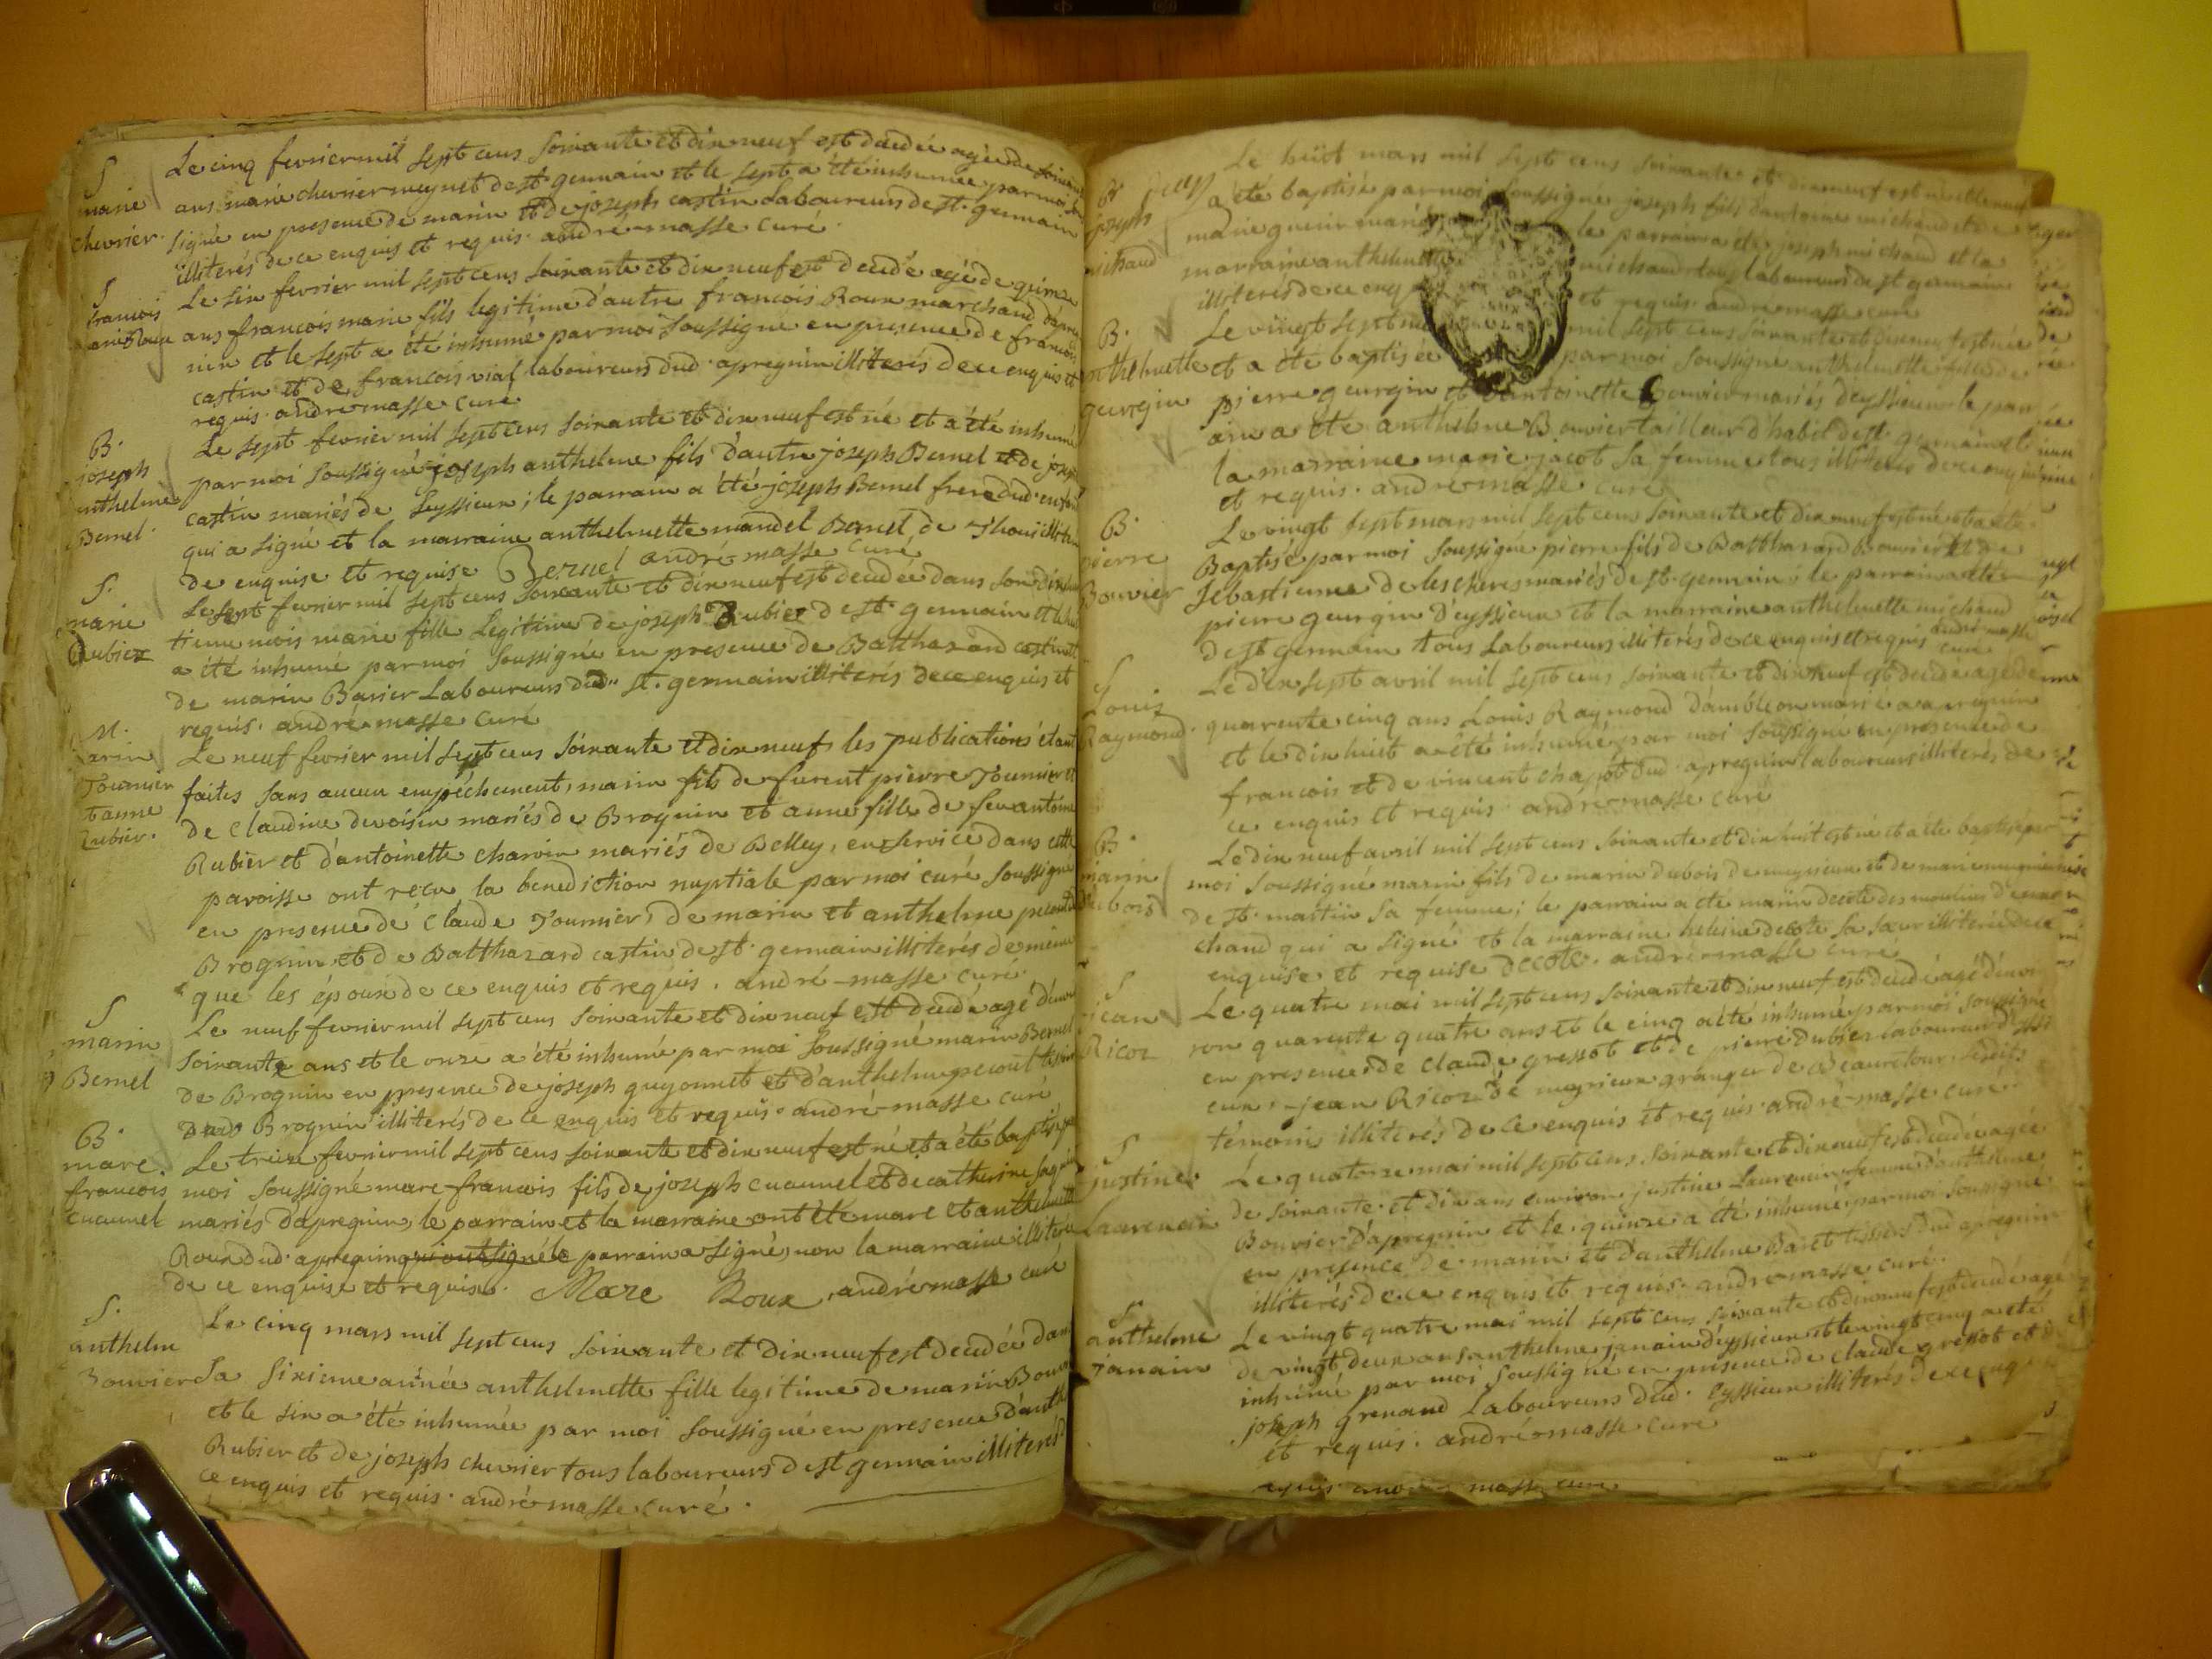 S
marie
chevrier.
Le cinq fevrier mil sept cens soixante et dix neuf est decedée agée de
ans marie chevrier meynet de st. germain et le sept a été inhumée par moi
signé en presence de marin et de joseph castin laboureurs de st. germain
illiterés de ce enquis et requis. andré-masse curé.
S
francois
Le six fevrier mil sept cens soixante et dix neuf est decedé agé de quinze
ans francois marie fils legitime d'autre francois Roux marchand
nin et le sept a été inhumé par moi soussigné en presence de francois
castin et de francois vial laboureurs dud. apregnin illiterés de ce enquis et
requis. andré-masse curé
B.
joseph
anthelme
Bernel.
Le sept fevrier mil sept cens soixante et dix neuf est né et a été inhumé
par moi soussigné joseph anthelme fils d'autre joseph Bernel et de
castin mariés de Leyssieux; le parrain a été joseph Bernel frere dud. enfant
qui a signé et la marraine anthelmette mandel Bernel de
de enquise et requise Bernel andré masse curé
S.
marie
Rubier
Le sept fevrier mil sept cens soixante et dix neuf est decedée dans son
tieme mois marie fille legitime de joseph Rubier de st. germain et le
a été inhumé par moi soussigné en presence de Balthazard castin et
de marin Barier laboureurs dud. st. germain illiterés de ce enquis et
requis. andré-masse curé
M.
marin
Tournier
et anne
Rubier.
Le neuf fevrier mil sept cens soixante et dix neuf les publications étant
faites sans aucun empéchement, marin fils de furent pierre Tournier et
de claudine devoisin mariés de Brognin et anne fille de feu antoine
Rubier et d'antoinette charvin mariés de Belley, en service dans cette
paroisse ont reçu la benediction nuptiale par moi curé soussigné
en presence de claude Tournier, de marin et anthelme
Brognin et de Balthazard castin de st. germain illiterés de méme
que les époux de ce enquis et requis. andré-masse curé.
S
marin
Bernel
Le neuf fevrier mil sept cens soixante et dix neuf est decedé agé
soixante ans et le onze a été inhumé par moi soussigné marin Bernel
de Brognin en presence de joseph guyonnet et d'anthelme
Brognin illiterés de ce enquis et requis. andré-masse curé
B.
marc.
francois
cucunel
Le treize fevrier mil sept cens soixante et dix neuf est né et a été baptisé par
moi soussigné marc-francois fils de joseph cucunel et de catherine
mariés d'apregnin, le parrain et la marraine ont été marc et anthelmette
Roux dud. apregnin qui ont signé le parrain a signé, non la marraine illiterée
de ce enquise et requise. Marc Roux, andré-masse curé
S.
anthelm
Bouvier
Le cinq mars mil sept cens soixante et dix neuf est decedée dans
sa sixieme année anthelmette fille legitime de marin Bouvier
et le six a été inhumée par moi soussigné en presence
Rubier et de joseph chevrier tous laboureurs de st germain illiterés de
ce enquis et requis. andré-masse curé.
B
joseph
michaud
Le huit mars mil sept cens soixante et dix neuf est né
a été baptisé par moi soussigné joseph fils d'antoine michaud et de
marie guerin mariés le parrain a été joseph michaud et la
marraine anthelmette michaud tous laboureurs de st germain
illiterés de ce enq et requis. andré-masse curé
B.
anthelmette
gurgin
Le vingt sept mil sept cens soixante et dix neuf est née
et a été baptisée par moi soussigné anthelmette fille de
pierre geurgin et d'antoinette Bouvier mariés d'eyssieux le par
ain a été anthelme Bouvier tailleur d'habit de st. germain et
la marraine marie jacot sa femme tous illiterés de ce enq
et requis. andré-masse curé
B.
pierre
Bouvier
Le vingt sept mars mil sept cens soixante et dix neuf est né et a été
Baptisé par moi soussigné pierre fils de Balthazard Bouvier et de
sebastienne de lescheres mariés de st. germain; le parrain a été
pierre geurgin d'eyssieux et la marraine anthelmette michaud
de st germain tous laboureurs illiterés de ce enquis et requis andré-masse
curé
S
Louis
Raymond.
Le dix sept avril mil sept cens soixante et dix neuf est decedé agé de
quarente cinq ans Louis Raymond d'ambleon marié a apregnin
et le dix huit a été inhumé par moi soussigné en presence de
francois et de vincent chapot dud. apregnin laboureurs illiterés de
ce enquis et requis. andré-masse curé
B.
marin
dubois
Le dix neuf avril mil sept cens soixante et dix huit est né et a été baptisé par
moi soussigné marin fils de marin dubois de meyrieux et de marie
de st. martin sa femme; le parrain a été marin decote des moulins
chand qui a signé et la marraine helene decote sa sœur illiterée de ce
enquise et requise decote. andré-masse curé
S
jean
Ricoz
Le quatre mai mil sept cens soixante et dix neuf est decedé agé d'envi
ron quarente quatre ans et le cinq a été inhumé par moi soussigné
en presence de claude gressot et de pierre dubier laboureurs
eux, jean Ricoz de meyrieux granger de Beauretour
témoins illiterés de ce enquis et requis andré-masse curé.
S
justine.
Laurencin
Le quatorze mai mil sept cens soixante et dix neuf est decedée agée
de soixante et dix ans environ justine Laurencin femme d'anthelme
Bouvier d'apregnin et le quinze a été inhumé par moi soussigné
en presence de marin et d'anthelme Baret tissiers dud apregnin
illiterés de ce enquis et requis. andré-masse curé.
S
anthelme
janain
Le vingt quatre mai mil sept cens soixante et dix neuf est decedé agé
de vingt deux ans anthelme janain d'eyssieux et le vingt cinq a été
inhumé par moi soussigné en presence de claude gressot et d
joseph grenand laboureurs dud. eyssieux illiterés de ce enq
et requis. andré-masse curé